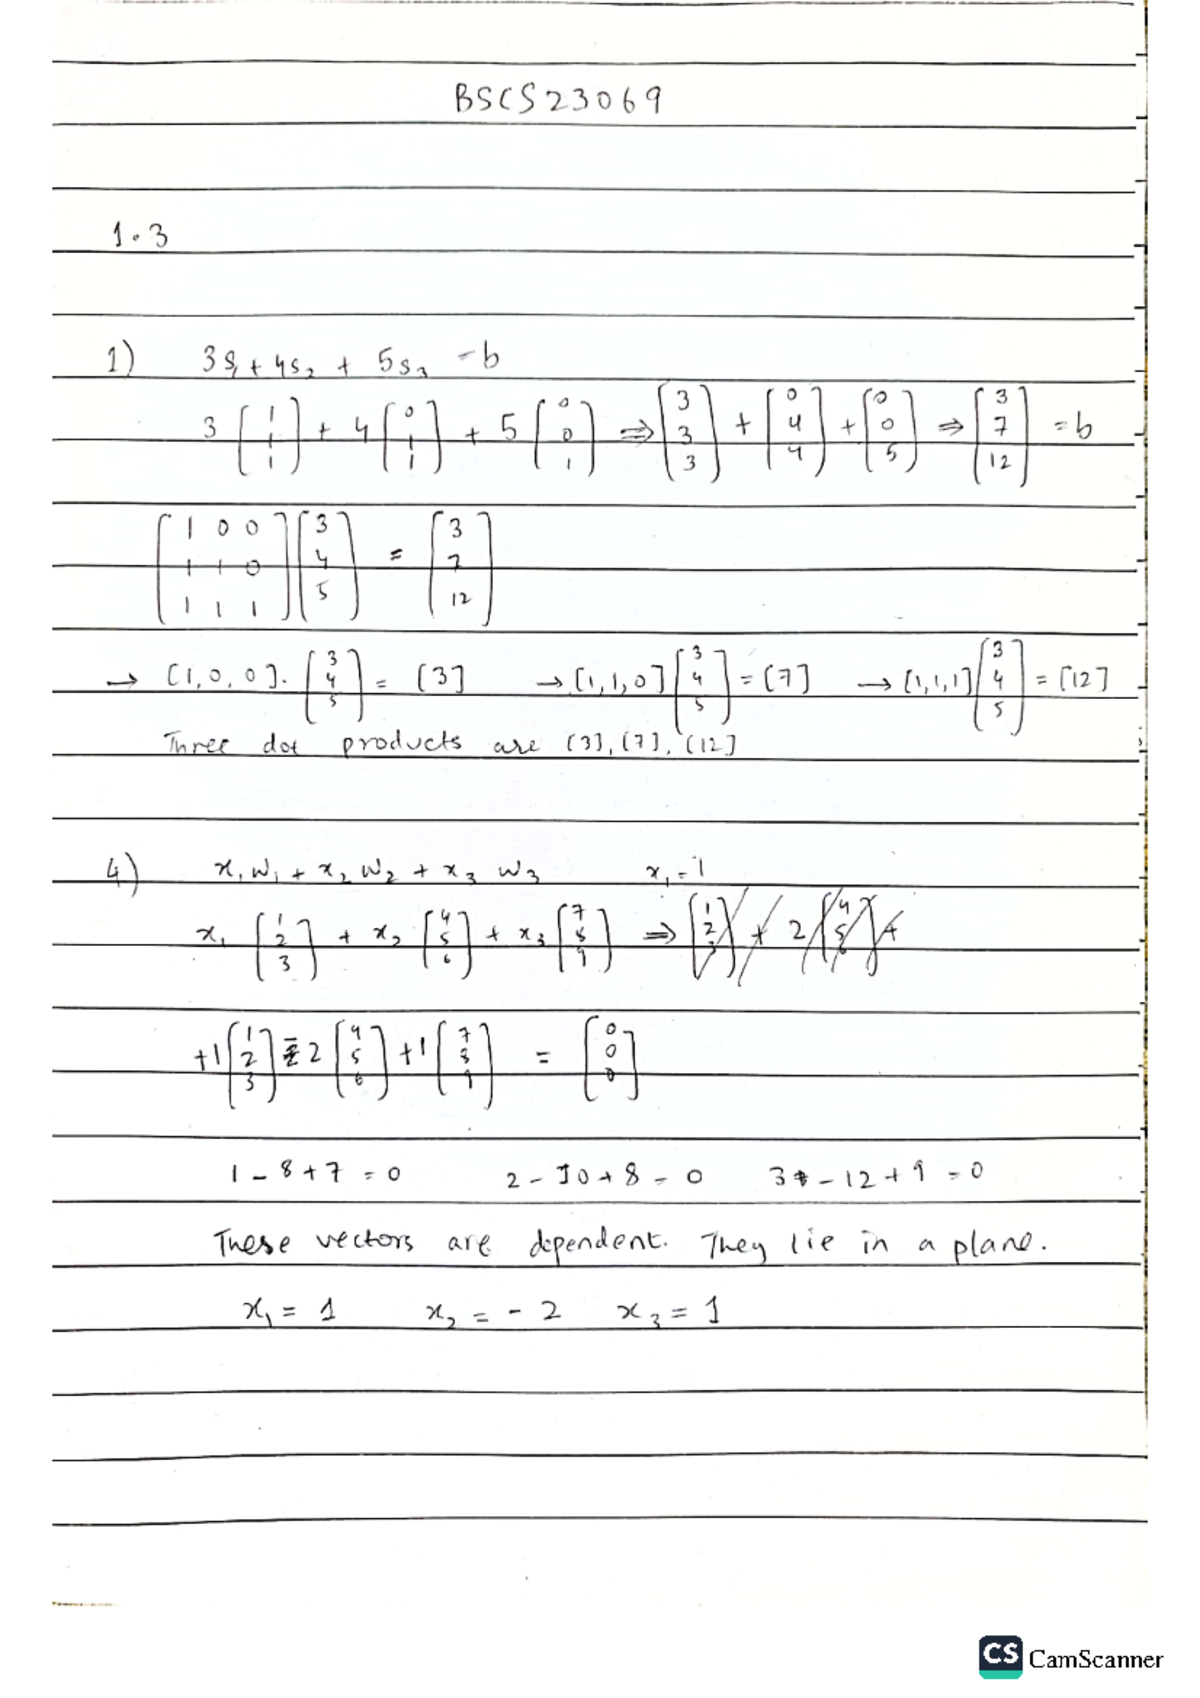 BSCS23069
1.3
1) 3s₁ + 4s₂ + 5s₃ = b
3 [1 1 1] + 4 [0 1 1] + 5 [0 0 1] ⇒ [3 3 3] + [0 4 4] + [0 0 5] ⇒ [3 7 12] = b
[1 0 0; 1 1 0; 1 1 1] [3 4 5] = [3 7 12]
→ [1,0,0]. [3 4 5] = [3] → [1,1,0] [3 4 5] = [7] → [1,1,1] [3 4 5] = [12]
Three dot products are [3], [7], [12]
4) x₁w₁ + x₂w₂ + x₃w₃ x₁ = 1
x₁ [1 2 3] + x₂ [4 5 6] + x₃ [7 8 9] ⇒ [1 2 3] + 2 [4 5 6] +
+1 [1 2 3] - 2 [4 5 6] + 1 [7 8 9] = [0 0 0]
1 - 8 + 7 = 0 2 - 10 + 8 = 0 3 - 12 + 9 = 0
These vectors are dependent. They lie in a plane.
x₁ = 1 x₂ = - 2 x₃ = 1
CS CamScanner